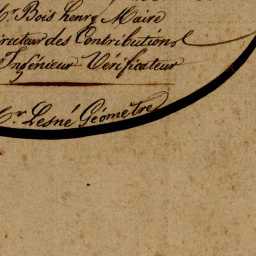 Mr Bois henry Maire
irecteur des Contributions
Ingénieur Verificateur
Mr Lesné Géomètre